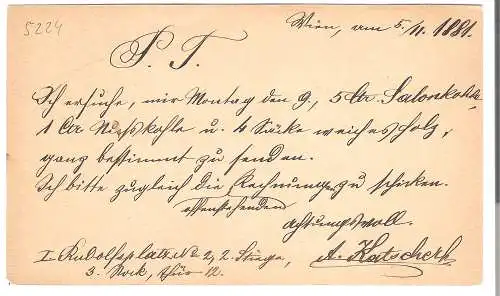 5224
Wien, am 5./11. 1881.
P. T.
Ich ersuche, mir Montag den 9., 5 Ctr. Salonkohle,
1 Ctr Nusskohle u. 4 Säcke weiches Holz,
ganz bestimmt zu senden.
Ich bitte zugleich die Rechnungen zu schicken.
offenstehenden
Achtungsvoll.
I. Rudolfsplatz No 2, 2. Stiege,
A. Katscherk
3. Stock, Thür 12.